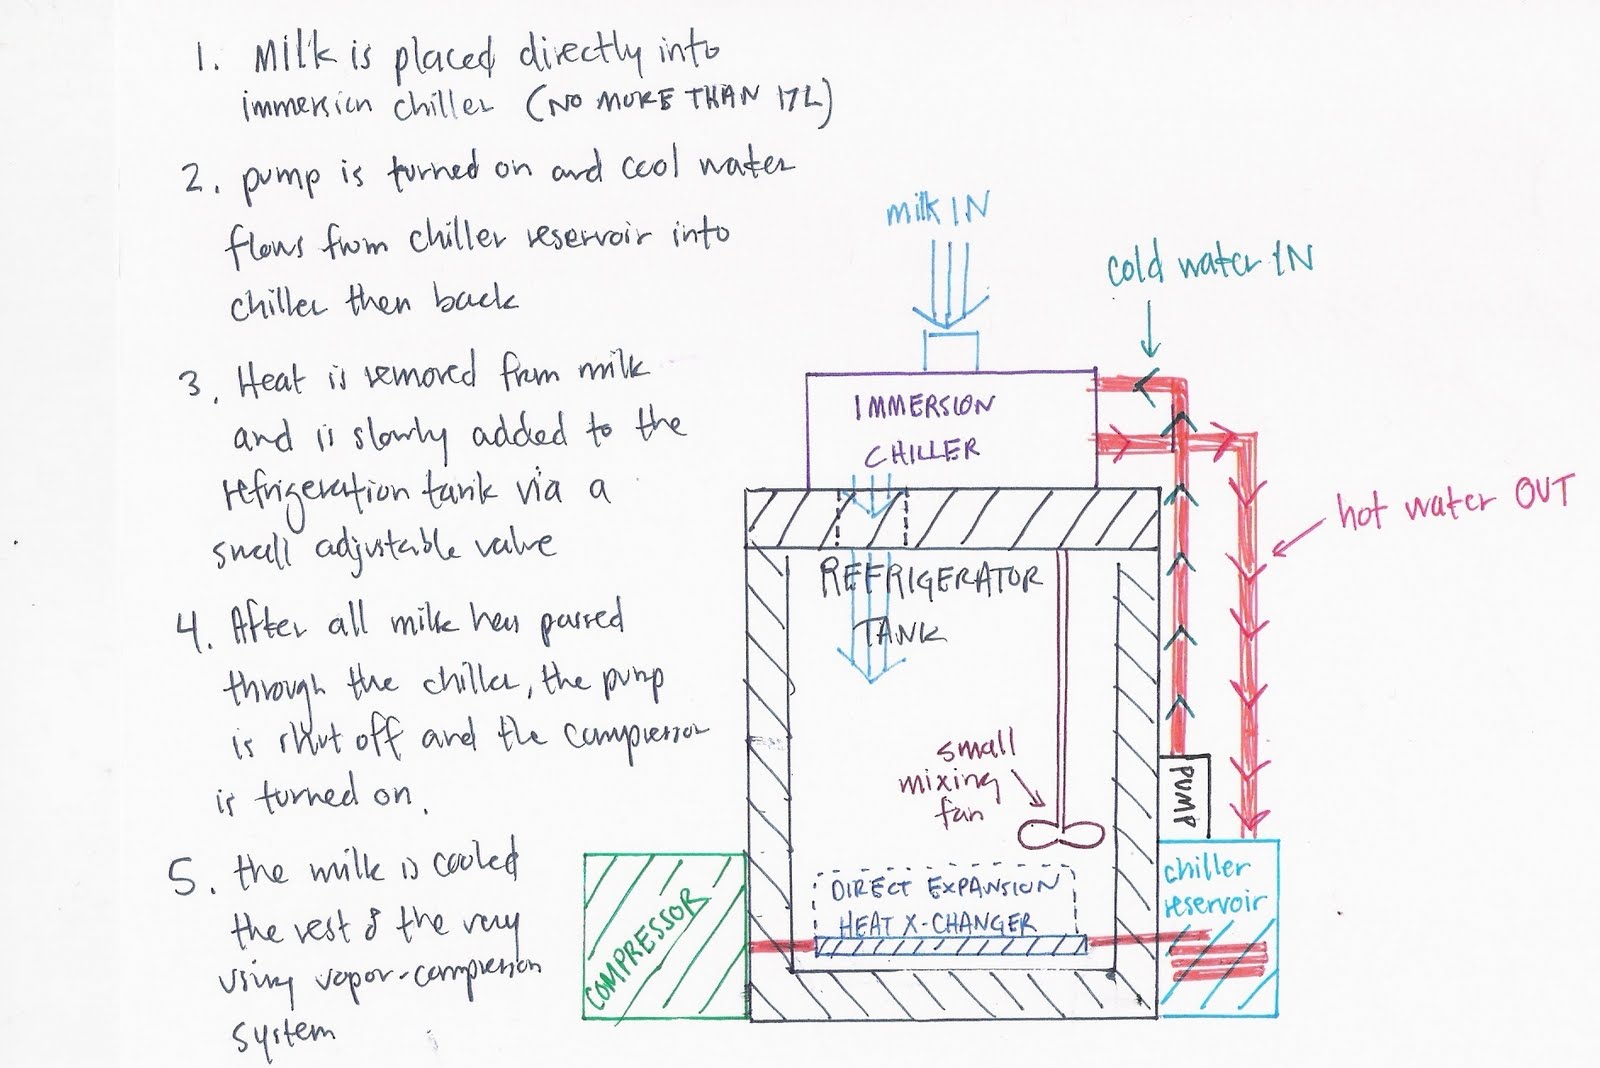 1. Milk is placed directly into
immersion chiller (NO MORE THAN 17L)
2. pump is turned on and cool water
flows from chiller reservoir into
chiller then back
3. Heat is removed from milk
and is slowly added to the
refrigeration tank via a
small adjustable valve
4. After all milk has passed
through the chiller, the pump
is shut off and the compressor
is turned on.
5. the milk is cooled
the rest of the way
using vapor-compression
system
milk IN
cold water IN
IMMERSION
CHILLER
hot water OUT
REFRIGERATOR
TANK
small
mixing
fan
PUMP
chiller
reservoir
DIRECT EXPANSION
HEAT X-CHANGER
COMPRESSOR